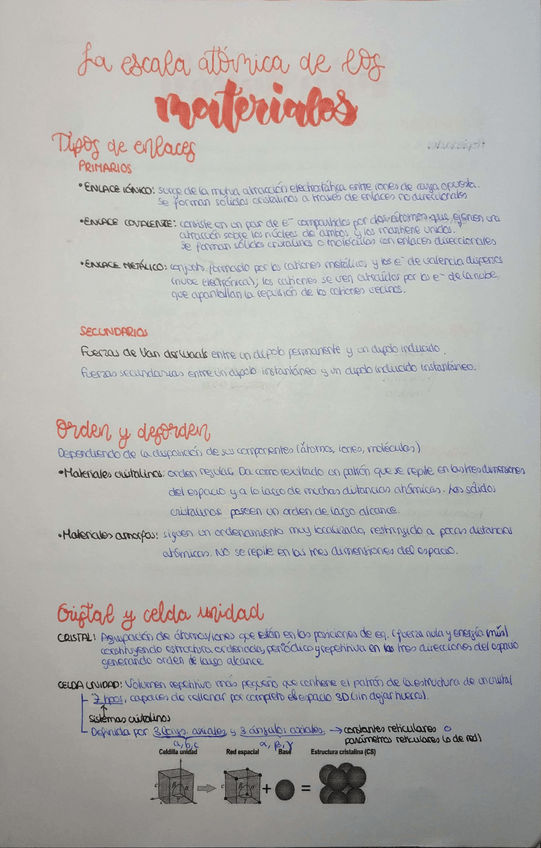 La escala atómica de los
materiales
Tipos de enlaces
PRIMARIOS
•ENLACE IÓNICO: surge de la mutua atracción electrostática entre iones de carga opuesta.
Se forman sólidos cristalinos a través de enlaces no direccionales
•ENLACE COVALENTE: consiste en un par de e⁻ compartidos por dos átomos que ejercen una
atracción sobre los núcleos de ambos y los mantiene unidos.
Se forman sólidos cristalinos o moléculas con enlaces direccionales
•ENLACE METÁLICO: conjunto formado por los cationes metálicos y los e⁻ de valencia dispersos
(nube electrónica); los cationes se ven atraídos por los e⁻ de la nube,
que apantallan la repulsión de los cationes vecinos.
SECUNDARIOS
Fuerzas de Van der Waals entre un dipolo permanente y un dipolo inducido.
Fuerzas secundarias entre un dipolo instantáneo y un dipolo inducido instantáneo.
Orden y desorden
Dependiendo de la disposición de sus componentes (átomos, iones, moléculas)
•Materiales cristalinos: orden regular. Da como resultado un patrón que se repite en las tres dimensiones
del espacio y a lo largo de muchas distancias atómicas. Los sólidos
cristalinos poseen un orden de largo alcance.
•Materiales amorfos: siguen un ordenamiento muy localizado, restringido a pocas distancias
atómicas. No se repite en las tres dimensiones del espacio.
Cristal y celda unidad
CRISTAL: Agrupación de átomos/iones que están en las posiciones de eq. (fuerza nula y energía mín)
constituyendo estructura ordenada, periódica y repetitiva en las tres direcciones del espacio
generando orden de largo alcance.
CELDA UNIDAD: Volumen repetitivo más pequeño que contiene el patrón de la estructura de un cristal
7 tipos, capaces de rellenar por completo el espacio 3D (sin dejar huecos).
sistemas cristalinos
Definida por 3 long. axiales y 3 ángulos axiales → constantes reticulares o
a, b, c α, β, γ parámetros reticulares (o de red)
Celdilla unidad Red espacial Base Estructura cristalina (CS)
+ =